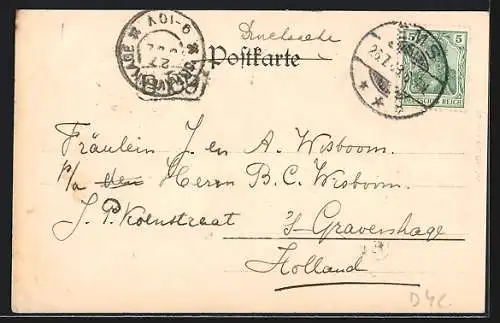 Drucksache
Postkarte
9-10V
EMS
5 5
DEUTSCHES REICH
Fräulein J. en A. Wisboom.
p/a den Herrn B. C. Wisboom.
J. P. Koenstraat 's-Gravenhage
Holland